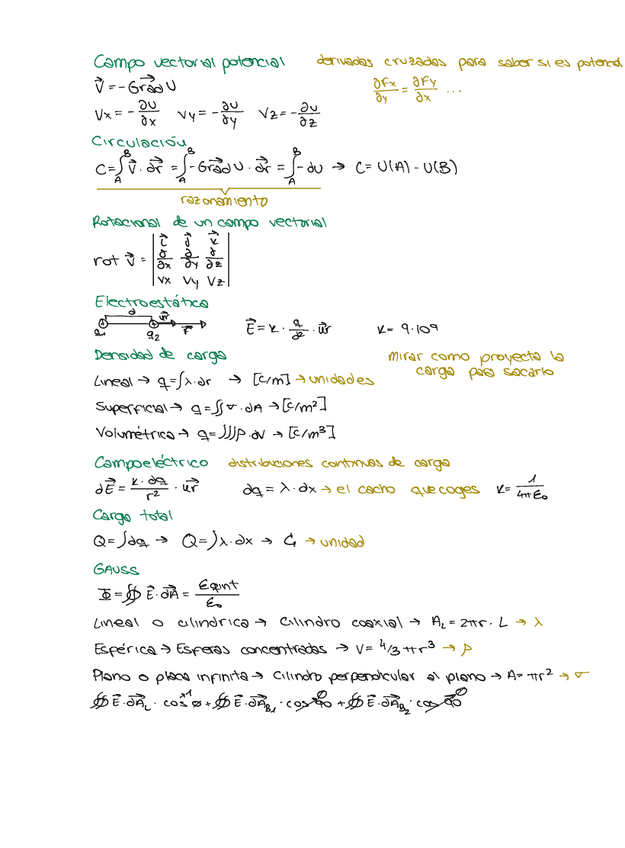 Campo vectorial potencial derivadas cruzadas para saber si es potencial
V⃗ = - Grad⃗ U ∂Fx/∂y = ∂Fy/∂x ...
Vx = - ∂U/∂x Vy = - ∂U/∂y Vz = - ∂U/∂z
Circulación
C = ∫_A^B V⃗ · dr⃗ = ∫_A^B - Grad⃗ U · dr⃗ = ∫_A^B - dU → C = U(A) - U(B)
razonamiento
Rotacional de un campo vectorial
rot V⃗ = | i⃗ j⃗ k⃗ |
| ∂/∂x ∂/∂y ∂/∂z |
| Vx Vy Vz |
Electroestática
d u⃗r
q1 q2 F⃗ E⃗ = K · q/d² · u⃗r K = 9·10⁹
Densidad de carga mirar como proyecta la
carga para sacarlo
Lineal → q = ∫λ·dr → [C/m] → unidades
Superficial → q = ∬σ·dA → [C/m²]
Volumétrica → q = ∭ρ·dV → [C/m³]
Campo eléctrico distribuciones continuas de carga
dE⃗ = K·dq/r² · u⃗r dq = λ·dx → el cacho que coges K = 1/4πε₀
Carga total
Q = ∫dq → Q = ∫λ·dx → C → unidad
GAUSS
Φ = ∯ E⃗·dA⃗ = Σqint/ε₀
Lineal o cilíndrica → Cilindro coaxial → A_L = 2πr·L → λ
Esférica → Esferas concentradas → V = 4/3 πr³ → ρ
Plano o placa infinita → Cilindro perpendicular al plano → A = πr² → σ
∯ E⃗·dA⃗_L · cos 0 ¹ + ∯ E⃗·dA⃗_B1 · cos 90 ⁰ + ∯ E⃗·dA⃗_B2 · cos 90 ⁰